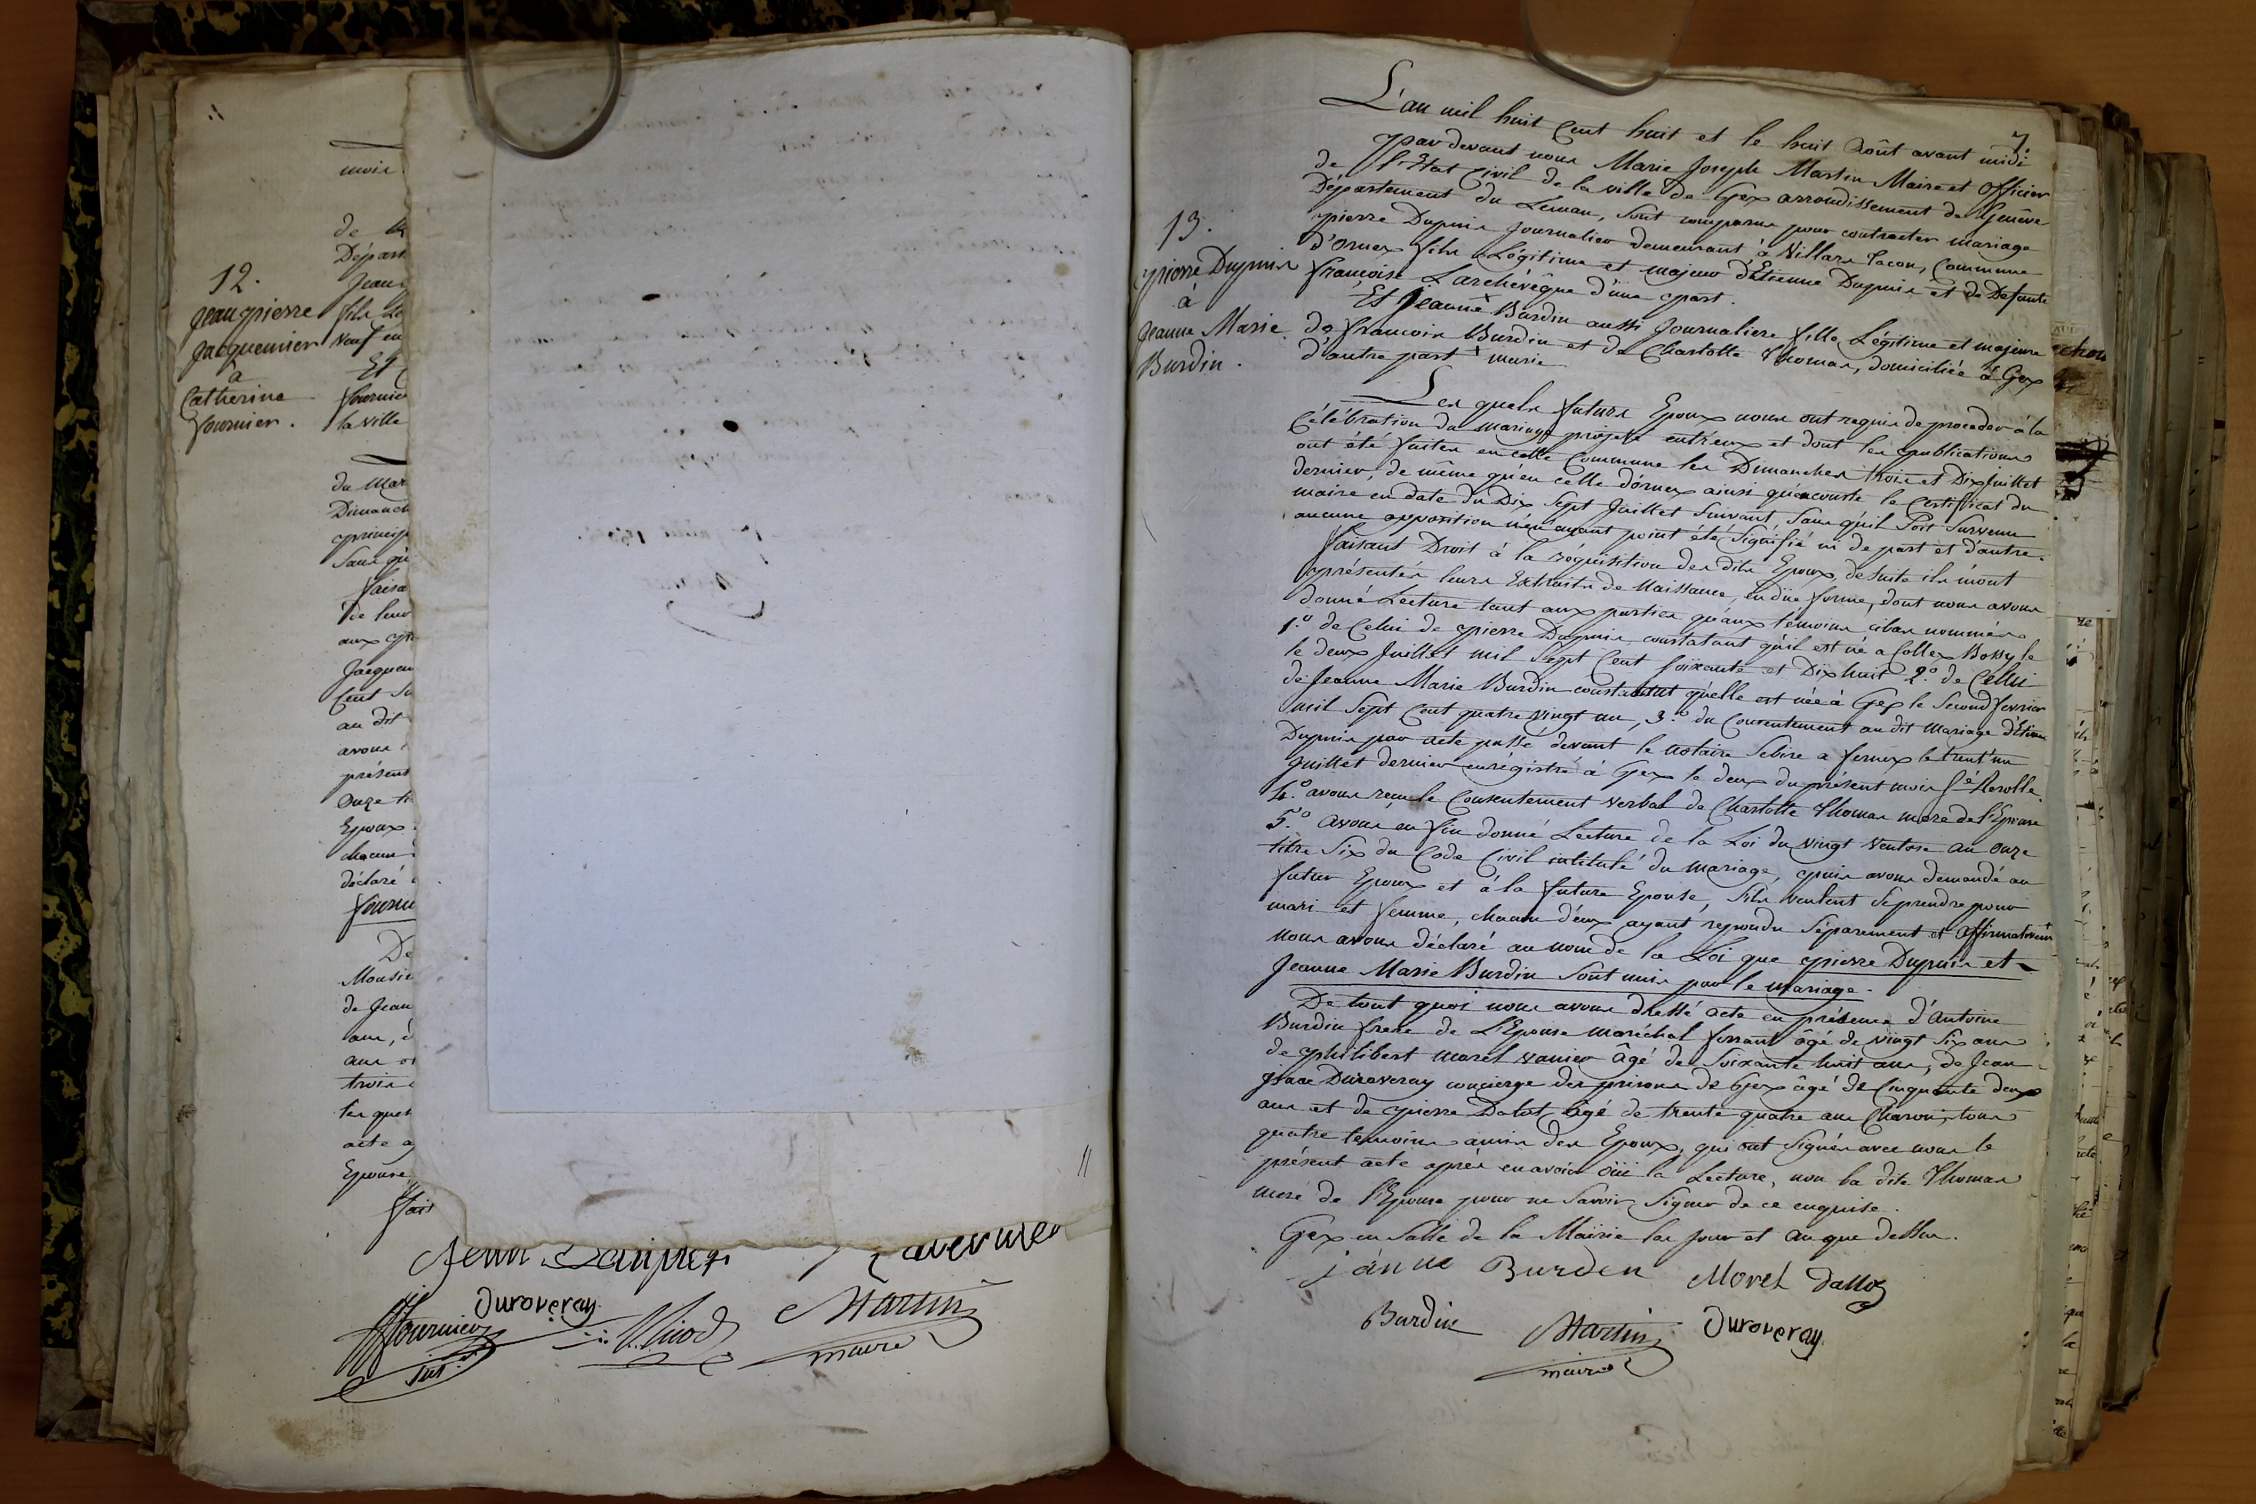 12.
Jean pierre
Jacquemier
à
Catherine
fournier.
mois
de
Départ
Jean
fils
veuf en
Et
fournie
la ville
du Mar
Dimanch
princip
Sans qu
faisa
de leur
aux
Jacquem
Cent
au dit
avons
présent
Onze
Epoux
chacun
déclaré
fourni
De
Monsie
de Jean
ans,
ans
trois
les quel
acte
Epouse
fait
Duroveray
fournier
Nicod
Martin
maire
7.
L'an mil huit Cent huit et le huit Août avant midi
pardevant nous Marie Joseph Martin Maire et officier
de l'Etat Civil de la ville de Gex arrondissement de Genêve
Département du Leman, sont comparus pour contracter mariage
pierre Dupuis journalier demeurant à Villars Tacon, Commune
d'ornex fils Légitime et majeur d'Etienne Dupuis et de Defunte
françoise Larchévêque d'une part.
Et Jeanne x Burdin aussi Journaliere fille Légitime et majeure
de francois Burdin et de Charlotte Thomas, domiciliée à Gex
d'autre part x marie
13.
pierre Dupuis
à
Jeanne Marie
Burdin.
Les quels futurs Epoux nous ont requis de proceder à la
Célébration du mariage projeté entr'eux et dont les publications
ont été faites en cette Commune les Dimanches trois et Dix Juillet
dernier, de même qu'en celle d'ornex ainsi qu'en conste le Certificat du
maire en date du Dix Sept Juillet Suivant, Sans qu'il Soit Survenu
aucune opposition n'en ayant point été Signifié ni de part et d'autre.
faisant Droit à la réquisition des dits Epoux, de suite ils m'ont
présentés leurs Extraits de Naissance, en düe forme, dont nous avons
donné Lecture tant aux parties qu'aux temoins cibas nommés
1.º de Celui de pierre Dupuis constatant qu'il est né a Collex Bossy le
le deux Juillet mil Sept Cent soixante et Dix huit 2.º de Celui
de Jeanne Marie Burdin constatant qu'elle est née à Gex le Second fevrier
mil Sept Cent quatre vingt un, 3.º du Consentement au dit Mariage d'Etienne
Dupuis par acte passé devant le notaire Sebire a fernex le trent'un
Juillet dernier enrégistré à Gex le deux du présent mois Sé. Rerolle.
4.º avons reçu le Consentement verbal de Charlotte Thomas mere de l'Epouse
5.º avons en fin donné Lecture de la Loi du vingt Ventose an onze
titre Six du Code Civil intitulé du Mariage, puis avons demandé au
futur Epoux et à la future Epouse, S'ils veulent se prendre pour
mari et femme, chacun d'eux ayant repondu Séparement et affirmativem.t
nous avons déclaré au nom de la Loi que pierre Dupuis et
Jeanne Marie Burdin Sont unis par le mariage.
De tout quoi nous avons dressé acte en présence d'Antoine
Burdin frere de L'Epouse maréchal ferrant âgé de vingt Six ans
de philibert morel vanier âgé de Soixante huit ans, de Jean
jsaac Duroveray concierge des prisons de Gex âgé de Cinquante deux
ans et de pierre Dalot âgé de trente quatre ans Charon, tous
quatre temoins amis des Epoux, qui ont Signés avec nous le
présent acte après en avoir oüi la Lecture, non la dite Thomas
mere de l'Epouse pour ne Savoir Signer de ce enquise.
Gex en Salle de la Mairie les jour et an que dessus.
jánne Burden Morel Dalloz
Burdin Martin Duroveray
maire